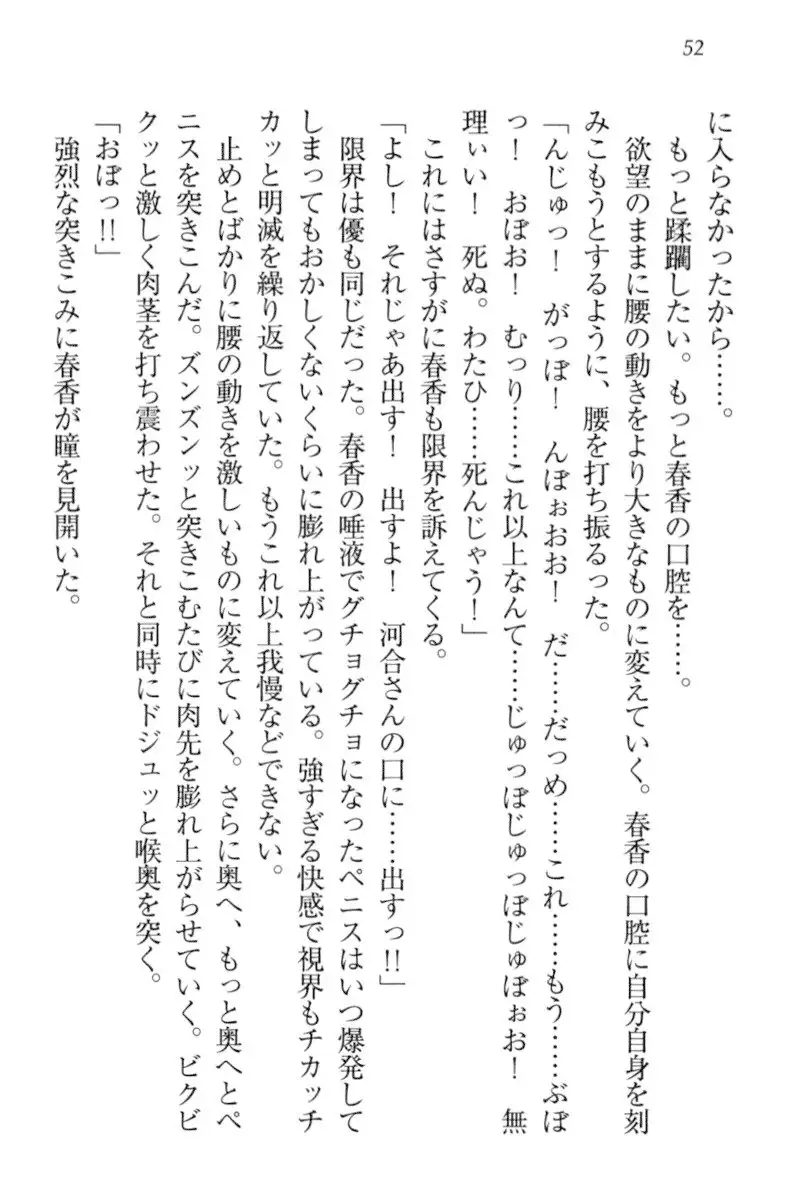 52
に入らなかったから……。
もっと蹂躙したい。もっと春香の口腔を……。
欲望のままに腰の動きをより大きなものに変えていく。春香の口腔に自分自身を刻
みこもうとするように、腰を打ち振るった。
「んじゅっ！　がっぽ！　んぼぉおお！　だ……だっめ……これ……もう……ぶぽ
っ！　おぼお！　むっり……これ以上なんて……じゅっぽじゅっぽじゅぼぉお！　無
理ぃい！　死ぬ。わたひ……死んじゃう！」
これにはさすがに春香も限界を訴えてくる。
「よし！　それじゃあ出す！　出すよ！　河合さんの口に……出すっ!!」
限界は優も同じだった。春香の唾液でグチョグチョになったペニスはいつ爆発して
しまってもおかしくないくらいに膨れ上がっている。強すぎる快感で視界もチカッチ
カッと明滅を繰り返していた。もうこれ以上我慢などできない。
止めとばかりに腰の動きを激しいものに変えていく。さらに奥へ、もっと奥へとペ
ニスを突きこんだ。ズンズンッと突きこむたびに肉先を膨れ上がらせていく。ビクビ
クッと激しく肉茎を打ち震わせた。それと同時にドジュッと喉奥を突く。
「おぼっ!!」
強烈な突きこみに春香が瞳を見開いた。